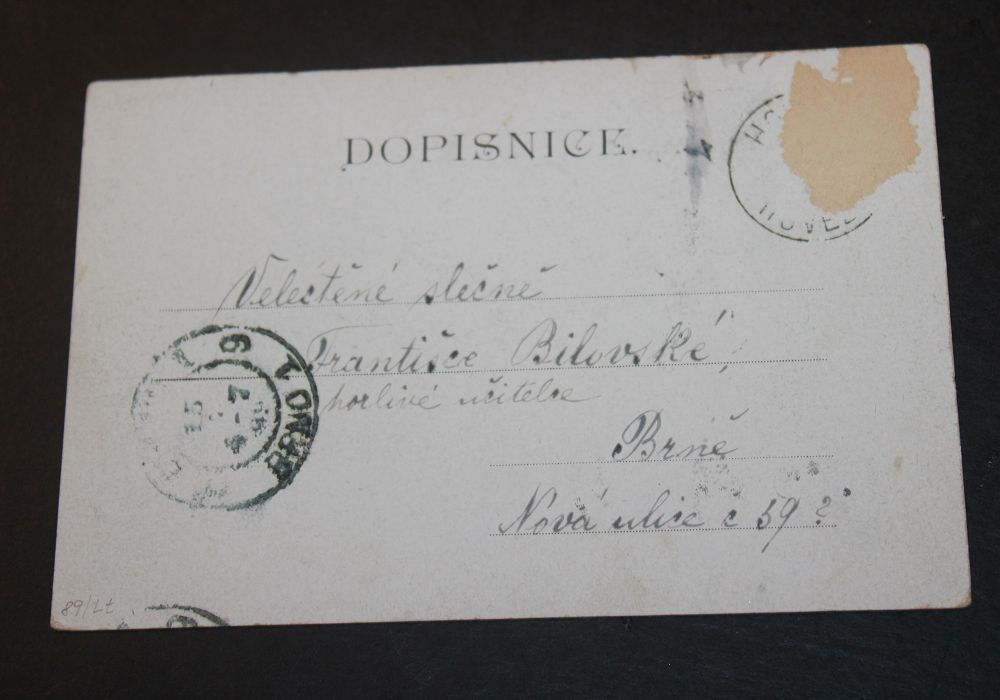 DOPISNICE.
Velectěné slečně
Františce Bilovské,
horlivé učitelce
Brně
Nová ulice č 59 ?
BRNO 1
15
4-7
9
89/Lt